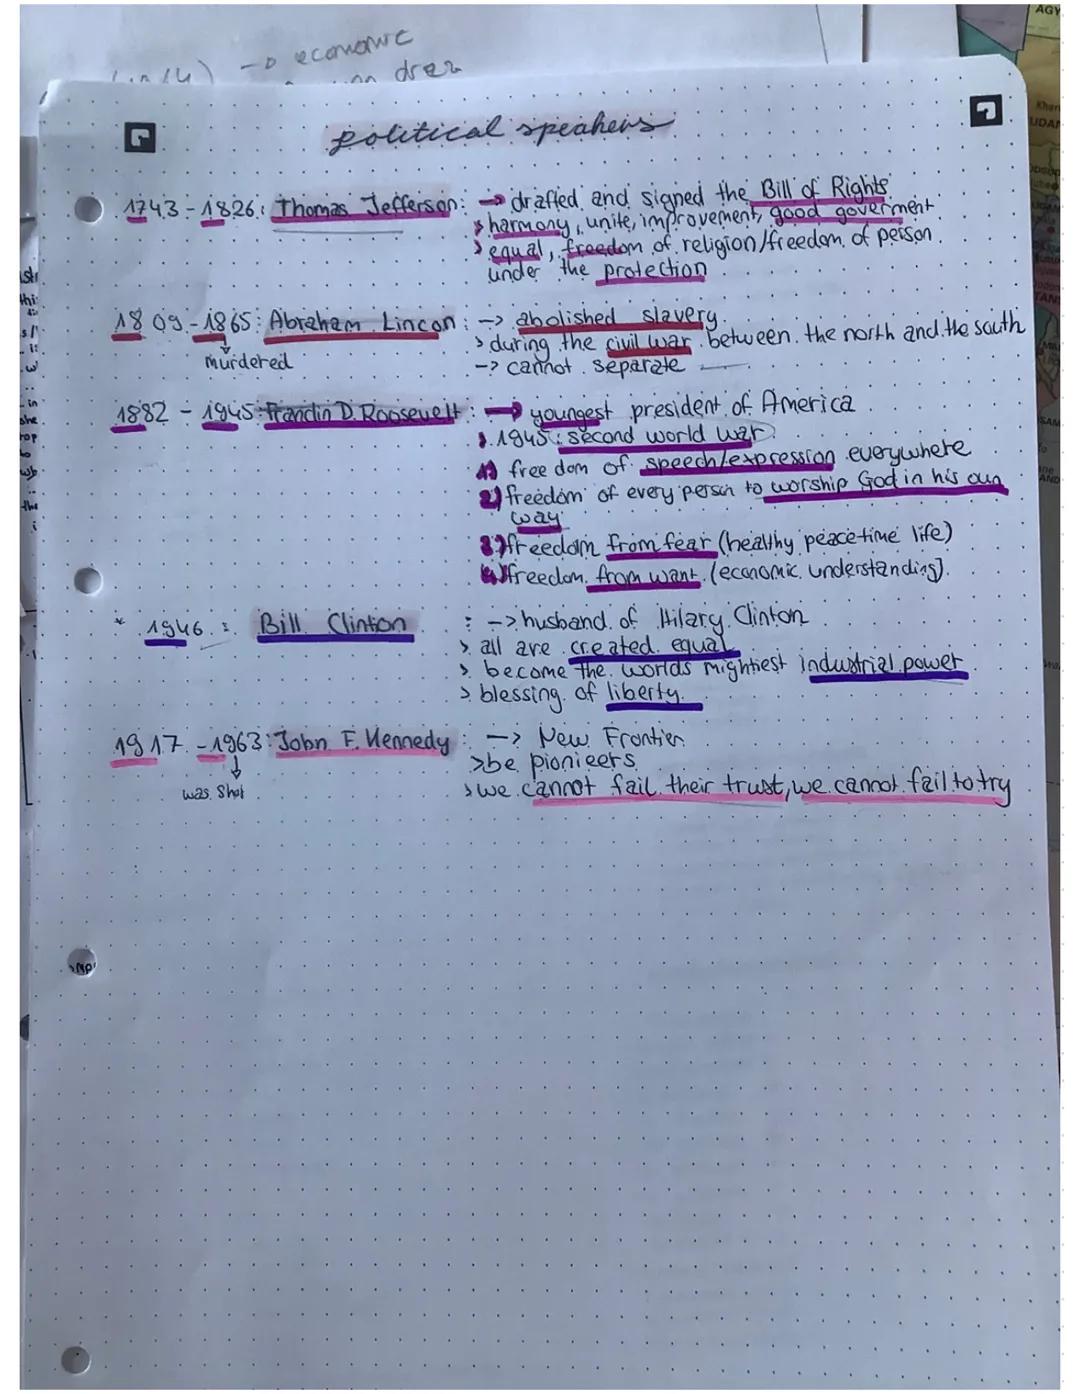 -> economic
political speakers
1743-1826: Thomas Jefferson: -> drafted and signed the Bill of Rights
> harmony, unite, improvement, good goverment
> equal, freedom of religion/freedom of person
under the protection
1809-1865: Abraham Lincon: -> abolished slavery
> during the civil war between the north and the south
murdered -> cannot separate
1882 - 1945: Franclin D. Roosevelt: -> youngest president of America
> 1945: second world war
1) freedom of speech/expression everywhere
2) freedom of every person to worship God in his own
way
3) freedom from fear (healthy peace-time life)
4) freedom from want (economic understanding).
* 1946: Bill Clinton : -> husband of Hilary Clinton
> all are created equal
> become the worlds mightiest industrial power
> blessing of liberty
1917-1963: John F. Kennedy: -> New Frontier
> be pionieers
was shot > we cannot fail their trust, we cannot fail to try